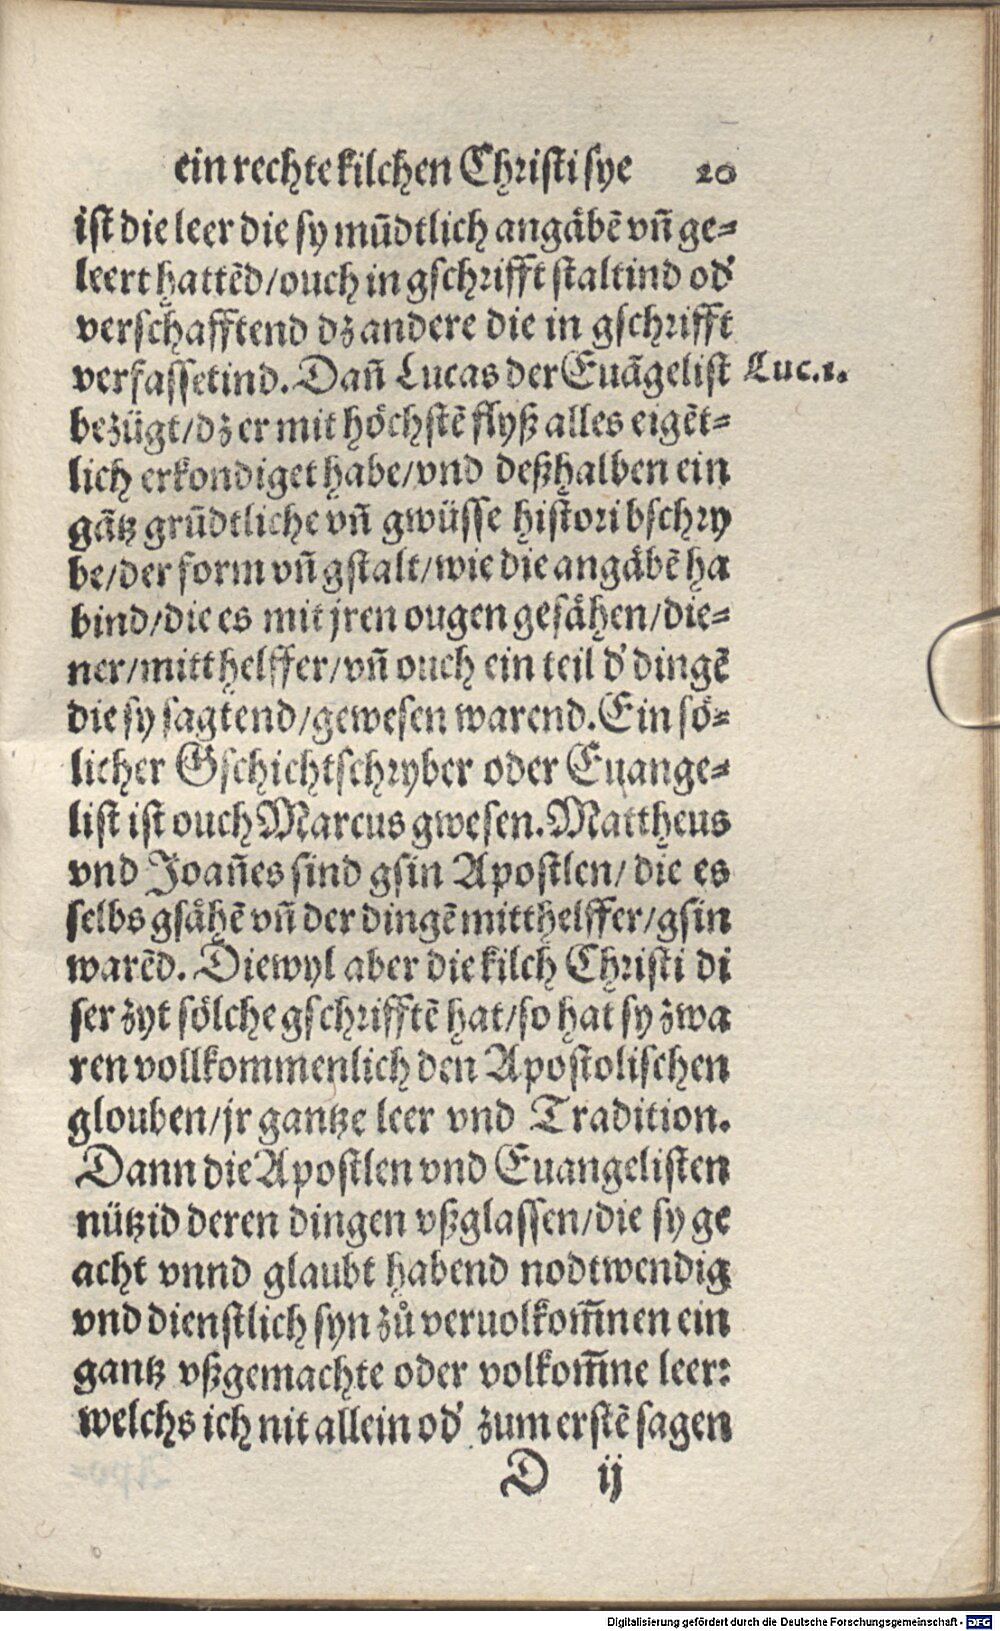 ein rechte kilchen Christi sye 20
ist die leer die sy mũdtlich angäbẽ vñ ge⸗
leert hattẽd/ouch in gschrifft staltind od'
verschafftend dz andere die in gschrifft
verfassetind. Dañ Lucas der Euãgelist Luc.1.
bezügt/dz er mit höchstẽ flyß alles eigẽt⸗
lich erkondiget habe/vnd deßhalben ein
gãtz grũdtliche vñ gwüsse histori bschry
be/der form vñ gstalt/wie die angäbẽ ha
bind/die es mit jren ougen gesähen/die⸗
ner/mitthelffer/vñ ouch ein teil d' dingẽ
die sy sagtend/gewesen warend. Ein sö⸗
licher Gschichtschryber oder Euange⸗
list ist ouch Marcus gwesen. Mattheus
vnd Joañes sind gsin Apostlen/die es
selbs gsähẽ vñ der dingẽ mitthelffer/gsin
warẽd. Diewyl aber die kilch Christi di
ser zyt sölche gschrifftẽ hat/so hat sy zwa
ren vollkommenlich den Apostolischen
glouben/jr gantze leer vnd Tradition.
Dann die Apostlen vnd Euangelisten
nützid deren dingen vßglassen/die sy ge
acht vnnd glaubt habend nodtwendig
vnd dienstlich syn zů veruolkom̃nen ein
gantz vßgemachte oder volkom̃ne leer:
welchs ich nit allein od' zum erstẽ sagen
D ij
Digitalisierung gefördert durch die Deutsche Forschungsgemeinschaft - DFG